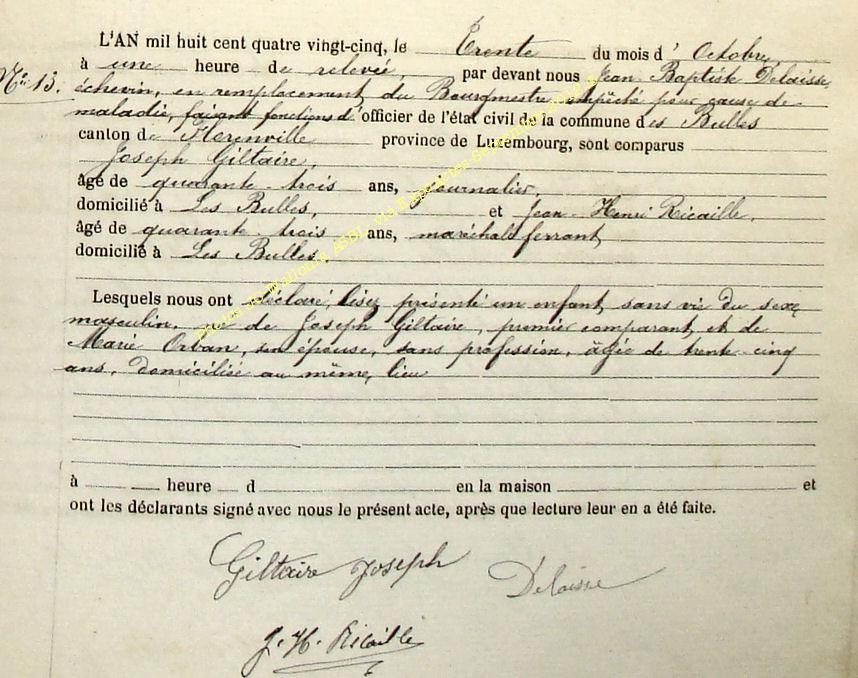 L'AN mil huit cent quatre vingt-cinq, le Trente du mois d' Octobre,
à une heure de relevée, par devant nous Jean Baptiste Delaisse,
N° 13.
échevin, en remplacement du Bourgmestre empêché pour cause de
maladie, faisant fonctions d'officier de l'état civil de la commune des Bulles
canton de Florenville province de Luxembourg, sont comparus
Joseph Giltaire,
âgé de quarante-trois ans, journalier,
domicilié à Les Bulles, et Jean-Henri Ricaille,
âgé de quarante-trois ans, maréchal ferrant,
domicilié à Les Bulles
Lesquels nous ont déclaré, lisez présenté un enfant sans vie du sexe
masculin, de Joseph Giltaire, premier comparant, et de
Marie Orban, son épouse, sans profession, âgée de trente-cinq
ans, domiciliée au même lieu
à heure d en la maison et
ont les déclarants signé avec nous le présent acte, après que lecture leur en a été faite.
Giltaire Joseph
Delaisse
J. H. Ricaille